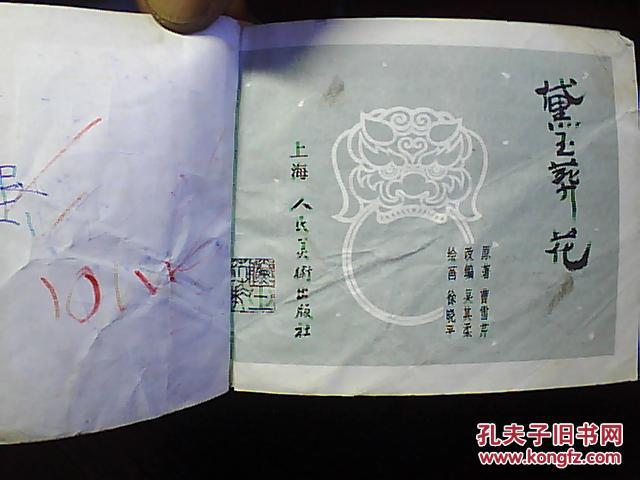 黛玉葬花
原著 曹雪芹
改编 吴其柔
绘画 徐晓平
上海人民美術出版社
101
孔夫子旧书网
www.kongfz.com